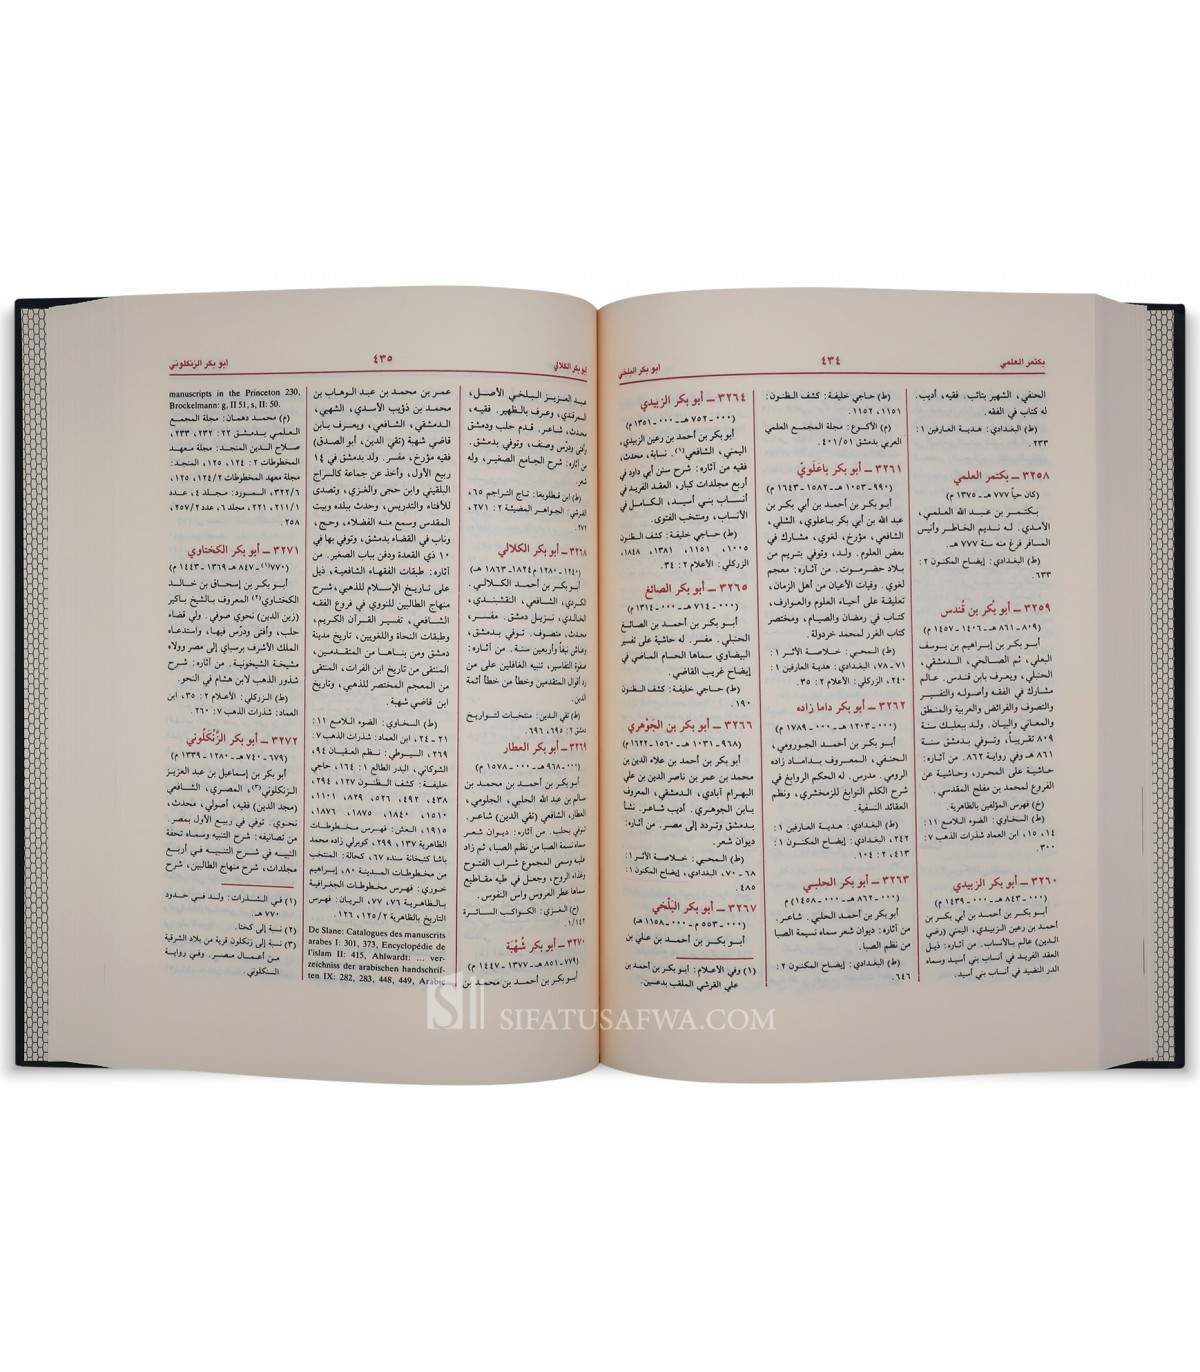 بكتمر العلمي
٤٣٤
ابو بكر البلخي
الحنفي، الشهير بنائب. فقيه، أديب.
له كتاب في الفقه.
(ط) البغدادي: هدية العارفين ١:
٢٣٣.
٣٢٥٨ ــ بكتمر العلمي
(كان حياً ٧٧٧ هـ ـ ١٣٧٥ م)
بكتمر بن عبد الله العلمي،
الآمدي. له نديم الخاطر وأنيس
المسافر فرغ منه سنة ٧٧٧ هـ.
(ط) البغدادي: إيضاح المكنون ٢:
٦٣٣.
٣٢٥٩ ــ أبو بكر بن قُندس
(٨٠٩ ـ ٨٦١ هـ ـ ١٤٠٦ ـ ١٤٥٧ م)
أبو بكر بن إبراهيم بن يوسف
البعلي، ثم الصالحي، الدمشقي،
الحنبلي، ويعرف بابن قندس. عالم
مشارك في الفقه وأصوله والتفسير
والتصوف والفرائض والعربية والمنطق
والمعاني والبيان. ولد ببعلبك سنة
٨٠٩ تقريباً، وتوفي بدمشق سنة
٨٦١ هـ وفي رواية ٨٦٢. من آثاره:
حاشية على المحرر، وحاشية على
الفروع لمحمد بن مفلح المقدسي.
(خ) فهرس المؤلفين بالظاهرية.
(ط) السخاوي: الضوء اللامع ١١:
١٤، ١٥، ابن العماد: شذرات الذهب ٧:
٣٠٠.
٣٢٦٠ ــ أبو بكر الزبيدي
(٠٠٠ ـ ٨٤٣ هـ ـ ٠٠٠ ـ ١٤٣٩ م)
أبو بكر بن أحمد بن أبي بكر بن
أحمد بن رعين الزبيدي، اليمني (رضي
الدين) عالم بالأنساب. من آثاره: ذيل
العقد الفريد في أنساب بني أسيد وسماه
الدر النضيد في أنساب بني أسيد.
(ط) حاجي خليفة: كشف الظنون:
١١٥١، ١١٥٢.
(م) الأكوع: مجلة المجمع العلمي
العربي بدمشق ٤٠١/٥١.
٣٢٦١ ــ أبو بكر باعَلَويّ
(٩٩٠ ـ ١٠٥٣ هـ ـ ١٥٨٢ ـ ١٦٤٣ م)
أبو بكر بن أحمد بن أبي بكر بن
عبد الله بن أبي بكر باعلوي، الشلي،
الشافعي، مؤرخ، لغوي، مشارك في
بعض العلوم. ولد، وتوفي بتريم من
بلاد حضرموت. من آثاره: معجم
لغوي. وفيات الأعيان من أهل الزمان،
تعليقة على أحياء العلوم والعوارف،
كتاب في رمضان والصيام، ومختصر
كتاب الغرر لمحمد خردولة.
(ط) المحبي: خلاصة الأثر ١:
٧١ ـ ٧٨، البغدادي: هدية العارفين ١:
٢٤٠، الزركلي: الأعلام ٢: ٣٥.
٣٢٦٢ ــ أبو بكر داما زاده
(٠٠٠ ـ ١٢٠٣ هـ ـ ٠٠٠ ـ ١٧٨٩ م)
أبو بكر بن أحمد الجورومي،
الحنفي، المعروف بداماد زاده
الرومي. مدرس. له الحكم الروابغ في
شرح الكلم النوابغ للزمخشري، ونظم
العقائد النسفية.
(ط) البغدادي: هدية العارفين ١:
٢٤٢، البغدادي: إيضاح المكنون ١:
٤١٣، ٢: ١٠٤.
٣٢٦٣ ــ أبو بكر الحلبي
(٠٠٠ ـ ٨٦٢ هـ ـ ٠٠٠ ـ ١٤٥٨ م)
أبو بكر بن أحمد الحلبي. شاعر.
من آثاره: ديوان شعر سماه نسيمة الصبا
من نظم الصبا.
(ط) البغدادي: إيضاح المكنون ٢:
٦٤٦.
٣٢٦٤ ــ أبو بكر الزبيدي
(٠٠٠ ـ ٧٥٢ هـ ـ ٠٠٠ ـ ١٣٥١ م)
أبو بكر بن أحمد بن رعين الزبيدي،
اليمني، الشافعي(١). نسابة، محدث،
فقيه من آثاره: شرح سنن أبي داود في
أربع مجلدات كبار، العقد الفريد في
أنساب بني أسيد، الكامل في
الأنساب، ومنتخب الفتوى.
(ط) حاجي خليفة: كشف الظنون
١٠٠٥، ١١٥١، ١٣٨١، ١٨٤٨،
الزركلي: الأعلام ٢: ٣٤.
٣٢٦٥ ــ أبو بكر الصائغ
(٠٠٠ ـ ٧١٤ هـ ـ ٠٠٠ ـ ١٣١٤ م)
أبو بكر بن أحمد بن الصائغ
الحنبلي. مفسر. له حاشية على تفسير
البيضاوي سماها الحام الماضي في
إيضاح غريب القاضي.
(ط) حاجي خليفة: كشف الظنون
١٩٠.
٣٢٦٦ ــ أبو بكر بن الجَوْهري
(٩٦٨ ـ ١٠٣١ هـ ـ ١٥٦٠ ـ ١٦٢٢ م)
أبو بكر بن أحمد بن علاء الدين بن
محمد بن عمر بن ناصر الدين بن علي
البهرام آبادي، الدمشقي، المعروف
بابن الجوهري. أديب شاعر. نشأ
بدمشق وتردد إلى مصر. من آثاره:
ديوان شعر.
(ط) المحبي: خلاصة الأثر ١:
٦٨ ـ ٧٠، البغدادي، إيضاح المكنون ١:
٤٨٥.
٣٢٦٧ ــ أبو بكر البَلْخي
(٠٠٠ ـ ٥٥٣ م ـ ٠٠٠ ـ ١١٥٨ هـ)
أبو بكر بن أحمد بن علي بن
(١) وفي الأعلام: أبو بكر بن أحمد بن
علي القرشي الملقب بدعسين.
ابو بكر الكلالي
٤٣٥
ابو بكر الزنكلوني
عبد العزيز البلخي الأصل،
السمرقندي، وعرف بالظهير. فقيه،
محدث، شاعر. قدم حلب ودمشق
وأفتى ودرّس وصنف، وتوفي بدمشق.
من آثاره: شرح الجامع الصغير، وله
شعر.
(ط) ابن قطلوبغا: تاج التراجم ٦٥،
القرشي: الجواهر المضيئة ٢: ٢٧١،
٢٧٢
٣٢٦٨ ــ أبو بكر الكلالي
(١٢٤٠ ـ ١٢٨٠ هـ ـ ١٨٢٤ ـ ١٨٦٣ م)
أبو بكر بن أحمد الكلالي.
الكردي، الشافعي، النقشبندي،
الخالدي، نزيل دمشق. مفسر،
محدث، متصوف. توفي بدمشق،
وعاش نيفاً وأربعين سنة. من آثاره:
صفوة التفاسير، تنبيه الغافلين على من
رد أقوال المتقدمين وخطأ من خطأ أئمة
الدين.
(ط) تقي الدين: منتخبات لتواريخ
دمشق ٢: ٦٩٥، ٦٩٦.
٣٢٦٩ ــ أبو بكر العطار
(٠٠٠ ـ ٩٦٨ هـ ـ ٠٠٠ ـ ١٥٧٨ م)
أبو بكر بن أحمد بن محمد بن
سالم بن عبد الله الحلبي، الجلومي،
العطار، الشافعي (تقي الدين) شاعر.
توفي بحلب. من آثاره: ديوان شعر
سماه نسمة الصبا من نظم الصبا، ثم زاد
عليه وسمى المجموع شراب الفتوح
وغذاء الروح، وجعل في طيه مقاطيع
سماها عطر العروس وأنس النفوس.
(خ) الغزي: الكواكب السائرة
١/١٤٢
٣٢٧٠ ــ أبو بكر شُهْبَة
(٧٧٩ ـ ٨٥١ هـ ـ ١٣٧٧ ـ ١٤٤٧ م)
أبو بكر بن أحمد بن محمد بن
عمر بن محمد بن عبد الوهاب بن
محمد بن ذؤيب الأسدي، الشهبي،
الدمشقي، الشافعي، ويعرف بابن
قاضي شهبة (تقي الدين، أبو الصدق)
فقيه مؤرخ، مفسر. ولد بدمشق في ١٤
ربيع الأول، وأخذ عن جماعة كالسراج
البلقيني وابن حجى والغزي، وتصدى
للأفتاء والتدريس، وحدث ببلده وبيت
المقدس وسمع منه الفضلاء، وحج،
وناب في القضاء بدمشق، وتوفي بها في
١٠ ذي القعدة ودفن بباب الصغير. من
آثاره: طبقات الفقهاء الشافعية، ذيل
على تاريخ الإسلام للذهبي، شرح
منهاج الطالبين للنووي في فروع الفقه
الشافعي، تفسير القرآن الكريم،
وطبقات النحاة واللغويين، تاريخ مدينة
دمشق ومن بناها من المتقدمين،
المنتقى من تاريخ ابن الفرات، المنتقى
من المعجم المختصر للذهبي، وتاريخ
ابن قاضي شهبة.
(ط) السخاوي: الضوء اللامع ١١:
٢١ ـ ٢٤، ابن العماد: شذرات الذهب ٧:
٢٦٩، السيوطي: نظم العقيان ٩٤،
الشوكاني، البدر الطالع ١: ١٦٤، حاجي
خليفة: كشف الظنون ١٢٧، ٢٩٤،
٤٣٨، ٤٩٢، ٥٢٦، ٨٢٩، ١١٠١،
١٥١٠، ١٨٤٠، ١٨٧٥، ١٨٧٦،
١٩١٥، العش: فهرس مخطوطات
الظاهرية ١٣٧، ٢٩٩، كوبرلي زاده محمد
باشا كتبخانة سنده ٦٧، كحالة: المنتخب
من مخطوطات المدينة ٨٠، إبراهيم
خوري: فهرس مخطوطات الجغرافية
بالظاهرية ٧٦، ٧٧، الريان: فهرس
التاريخ بالظاهرية ١٢٥/٢، ١٢٦.
De Slane: Catalogues des manuscrits
arabes I: 301, 373, Encyclopédie de
l'islam II: 415, Ahlwardt: ... ver-
zeichniss der arabischen handschrif-
ten IX: 282, 283, 448, 449, Arabic
manuscripts in the Princeton 230,
Brockelmann: g, II 51, s, II: 50.
(م) محمد دهمان: مجلة المجمع
العلمي بدمشق ٢٢: ٢٣٢، ٢٣٣،
صلاح الدين المنجد: مجلة معهد
المخطوطات ٢: ١٢٤، ١٢٥، المنجد:
مجلة معهد المخطوطات ١٢٤/٢، ١٢٥،
٣٢٢/٦، المورد: مجلد ٤، عدد
٢١١/١، ٢٢١، مجلد ٦، عدد ٢٥٧/٢،
٢٥٨.
٣٢٧١ ــ أبو بكر الكختاوي
(٧٧٠(١) ـ ٨٤٧ هـ ـ ١٣٦٩ ـ ١٤٤٣ م)
أبو بكر بن إسحاق بن خالد
الكختاوي(٢) المعروف بالشيخ باكير
(زين الدين) نحوي صوفي. ولي قضاء
حلب، وأفتى ودرّس فيها، واستدعاه
الملك الأشرف برسباي إلى مصر وولاه
مشيخة الشيخونية. من آثاره: شرح
شذور الذهب لابن هشام في النحو.
(ط) الزركلي: الأعلام ٢: ٣٥، ابن
العماد: شذرات الذهب ٧: ٢٦٠.
٣٢٧٢ ــ أبو بكر الزَّنْكَلُوني
(٦٧٩ ـ ٧٤٠ هـ ـ ١٢٨٠ ـ ١٣٣٩ م)
أبو بكر بن إسماعيل بن عبد العزيز
الزنكلوني(٣)، المصري، الشافعي
(مجد الدين) فقيه، أصولي، محدث،
نحوي. توفي في ربيع الأول بمصر.
من تصانيفه: شرح التنبيه وسماه تحفة
النبيه في شرح التنبيه في أربع
مجلدات، شرح منهاج الطالبين، شرح
(١) في الشذرات: ولد في حدود
٧٧٠ هـ.
(٢) نسبة إلى كختا.
(٣) نسبة إلى زنكلون قرية من بلاد الشرقية
من أعمال مصر. وفي رواية
السنكلوني.
SIFATUSAFWA.COM